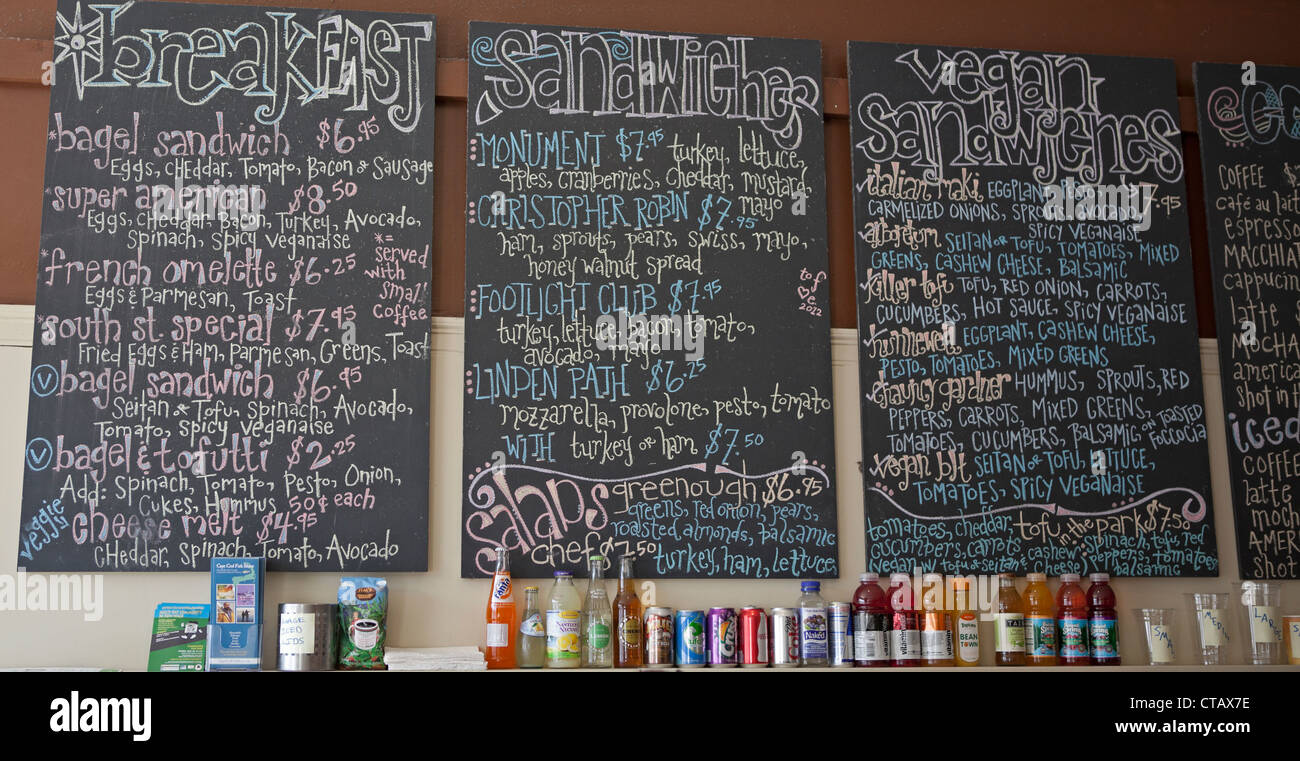 breakFAST
*bagel sandwich $6.95
Eggs, cheddar, Tomato, Bacon & Sausage
*super american $8.50
Eggs, cheddar, Bacon, Turkey, Avocado,
Spinach, spicy veganaise
*french omelette $6.25
Eggs & Parmesan, Toast
*= served with small coffee
*south st. special $7.95
Fried Eggs & Ham, Parmesan, Greens, Toast
V bagel sandwich $6.95
Seitan or Tofu, Spinach, Avocado,
Tomato, spicy veganaise
V bagel & tofutti $2.25
Add: Spinach, Tomato, Pesto, Onion,
Cukes, Hummus 50¢ each
veggie cheese melt $4.95
Cheddar, Spinach, Tomato, Avocado
Sandwiches
MONUMENT $7.95 turkey, lettuce,
apples, cranberries, cheddar, mustard,
mayo
CHRISTOPHER ROBIN $7.95
ham, sprouts, pears, swiss, mayo,
honey walnut spread
FOOTLIGHT CLUB $7.95
turkey, lettuce, bacon, tomato,
avocado, mayo
LINDEN PATH $6.25
mozzarella, provolone, pesto, tomato
WITH turkey or ham $7.50
Salads
greenough $6.95
greens, red onion, pears,
roasted almonds, balsamic
chef $7.50 turkey, ham, lettuce,
tomatoes, cheddar,
cucumbers, carrots
Vegan Sandwiches
$7.95
italian maki EGGPLANT, PESTO,
CARMELIZED ONIONS, SPROUTS, AVOCADO,
SPICY VEGANAISE
arboretum SEITAN OR TOFU, TOMATOES, MIXED
GREENS, CASHEW CHEESE, BALSAMIC
killer tofu TOFU, RED ONION, CARROTS,
CUCUMBERS, HOT SAUCE, SPICY VEGANAISE
EGGPLANT, CASHEW CHEESE,
PESTO, TOMATOES, MIXED GREENS
HUMMUS, SPROUTS, RED
PEPPERS, CARROTS, MIXED GREENS,
TOMATOES, CUCUMBERS, BALSAMIC ON TOASTED
FOCCOCIA
vegan blt SEITAN OR TOFU, LETTUCE,
TOMATOES, SPICY VEGANAISE
tofu in the park $7.50
vegan w/ tofu or seitan
cashew cheese, spinach, tofu, red
peppers, tomatoes,
balsamic
COFFEE
café au lait
espresso
MACCHIA
cappuccin
latte
MOCHA
america
shot in t
iced
COFFEE
latte
moch
AMER
SHOT
Fanta
Naked
BEAN
TOWN
alamy
Image ID: CTAX7E
www.alamy.com